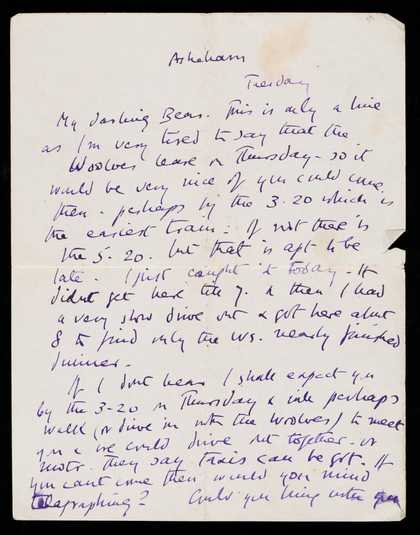 Asheham
Tuesday
My darling Bear. This is only a line
as I'm very tired to say that the
Woolves leave on Thursday - so it
would be very nice if you could come
then - perhaps by the 3-20 which is
the easiest train - if not there is
the 5-20. but that is apt to be
late - I just caught it today - It
didnt get here till 7. & then I had
a very slow drive out & got here about
8 to find only the Ws. nearly finished
dinner.
If I dont hear I shall expect you
by the 3-20 on Thursday & will perhaps
walk (or drive in with the Woolves) to meet
you & we could drive out together - or
motor. they say taxis can be got. If
you cant come then would you mind
telegraphing? Could you bring with you